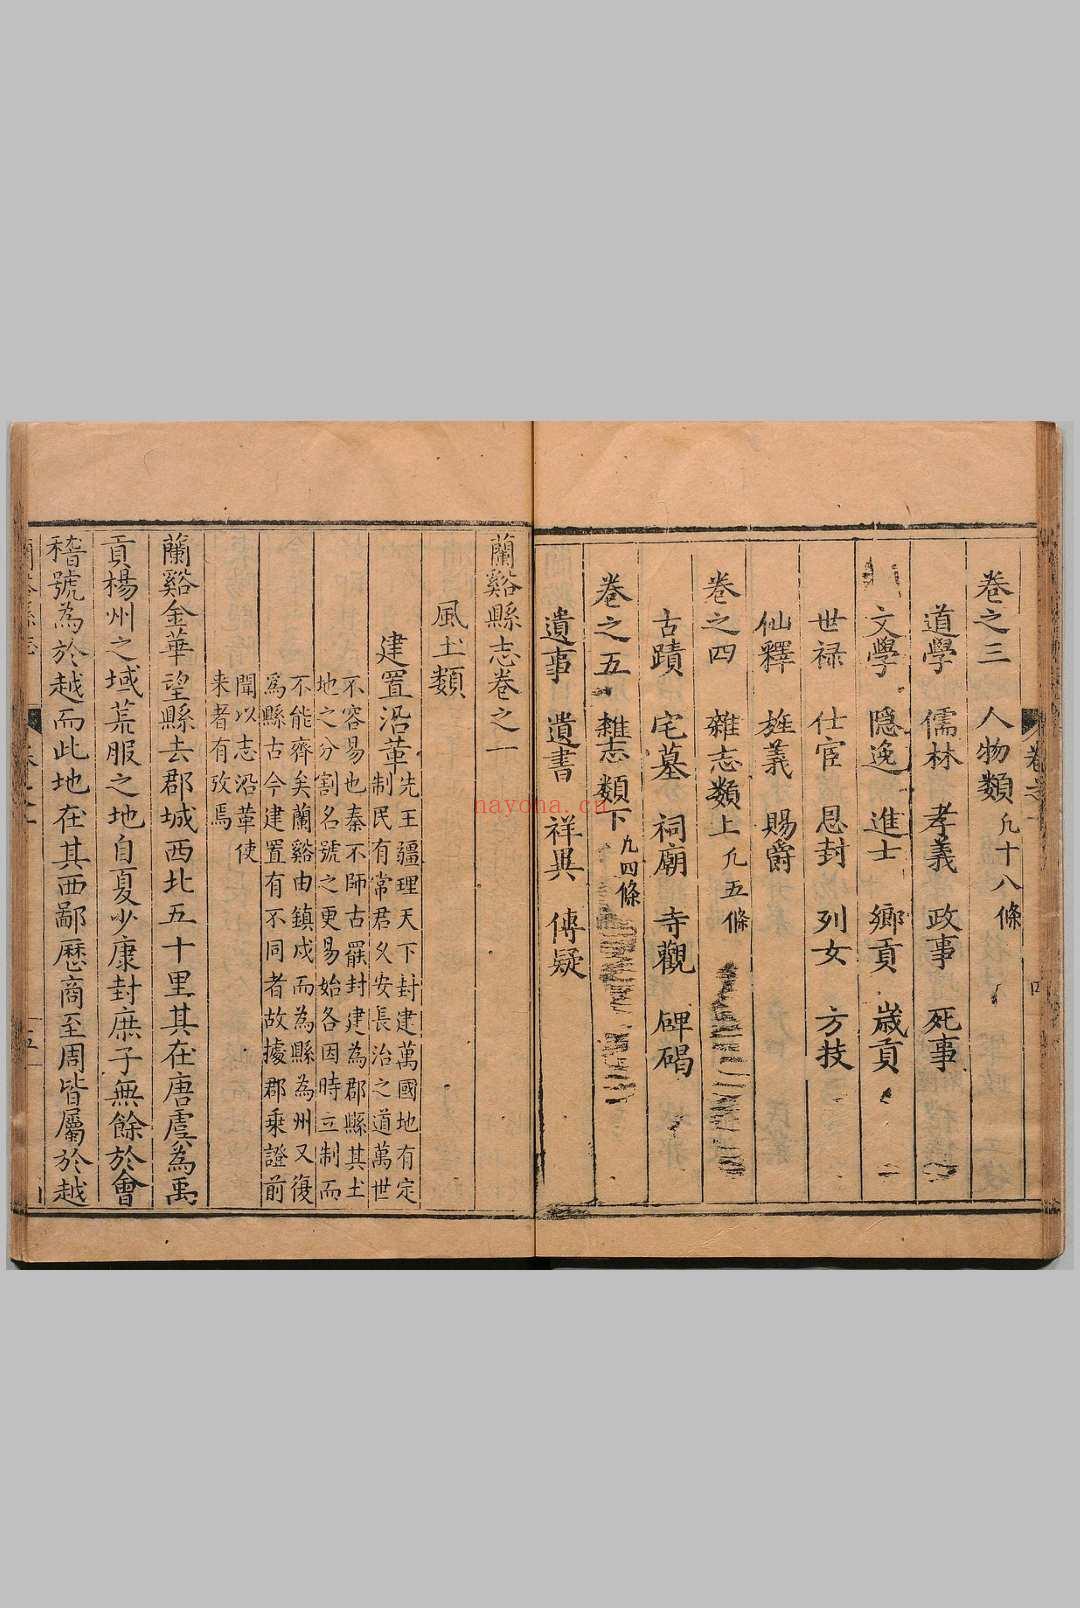 卷之三　人物類凢十八條
道學　儒林　孝義　政事　死事
文學　隱逸　進士　鄉貢　歲貢
世禄　仕宦　恩封　列女　方技
仙釋　旌義　賜爵
卷之四　雜志類上凢五條
古蹟　宅墓　祠廟　寺觀　碑碣
卷之五　雜志類下凢四條
遺事　遺書　祥異　傳疑
蘭谿縣志卷之一
風土類
建置沿革
先王疆理天下封建萬國地有定
制民有常君久安長治之道萬世
不容易也秦不師古罷封建為郡縣其土
地之分割名號之更易始各因時立制而
不能齊矣蘭谿由鎮戍而為縣為州又復
為縣古今建置有不同者故據郡乘證前
聞以志沿革使
来者有攷焉
蘭谿金華望縣去郡城西北五十里其在唐虞為禹
貢楊州之域荒服之地自夏少康封庶子無餘於會
稽號為於越而此地在其西鄙歷商至周皆屬於越
卷之一
四
nayona.cn